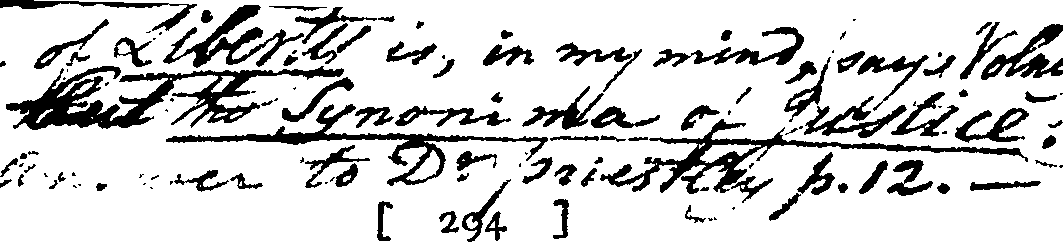 of Liberty is, in my mind, says Voln
but the Synonima of Justice.
answer to Dr Priestley p.12. —
[ 294 ]